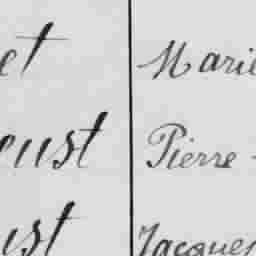 et Marie
eust Pierre -
ust Jacques